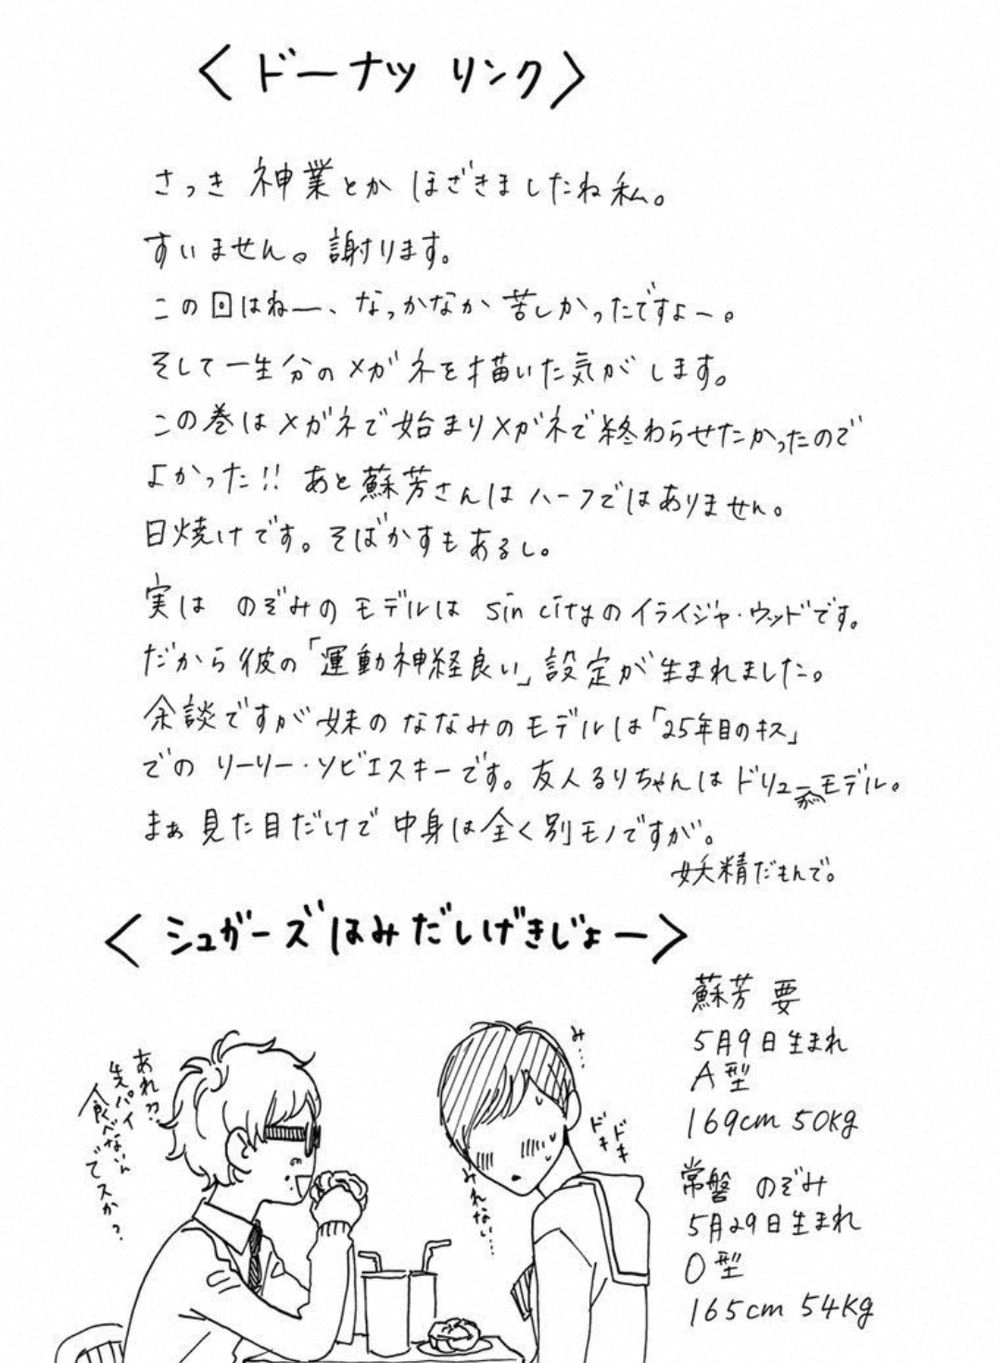 〈ドーナツ リンク〉
さっき 神業とか ほざきましたね私。
すいません。謝ります。
この回はねー、なっかなか 苦しかったですよー。
そして一生分のメガネを描いた気がします。
この巻はメガネで始まりメガネで終わらせたかったので
よかった!! あと蘇芳さんはハーフではありません。
日焼けです。そばかすもあるし。
実は のぞみのモデルは sin cityのイライジャ・ウッドです。
だから彼の「運動神経良い」設定が生まれました。
余談ですが妹のななみのモデルは「25年目のキス」
での リーリー・ソビエスキーです。友人るりちゃんはドリューがモデル。
まぁ 見た目だけで 中身は全く別モノですが。
妖精だもんで。
〈シュガーズはみだしげきじょー〉
あれ??
先パイ
食べないん
でスか?
み…
ドキ
ドキ
みれない…
蘇芳 要
5月9日生まれ
A型
169cm 50kg
常盤 のぞみ
5月29日生まれ
O型
165cm 54kg